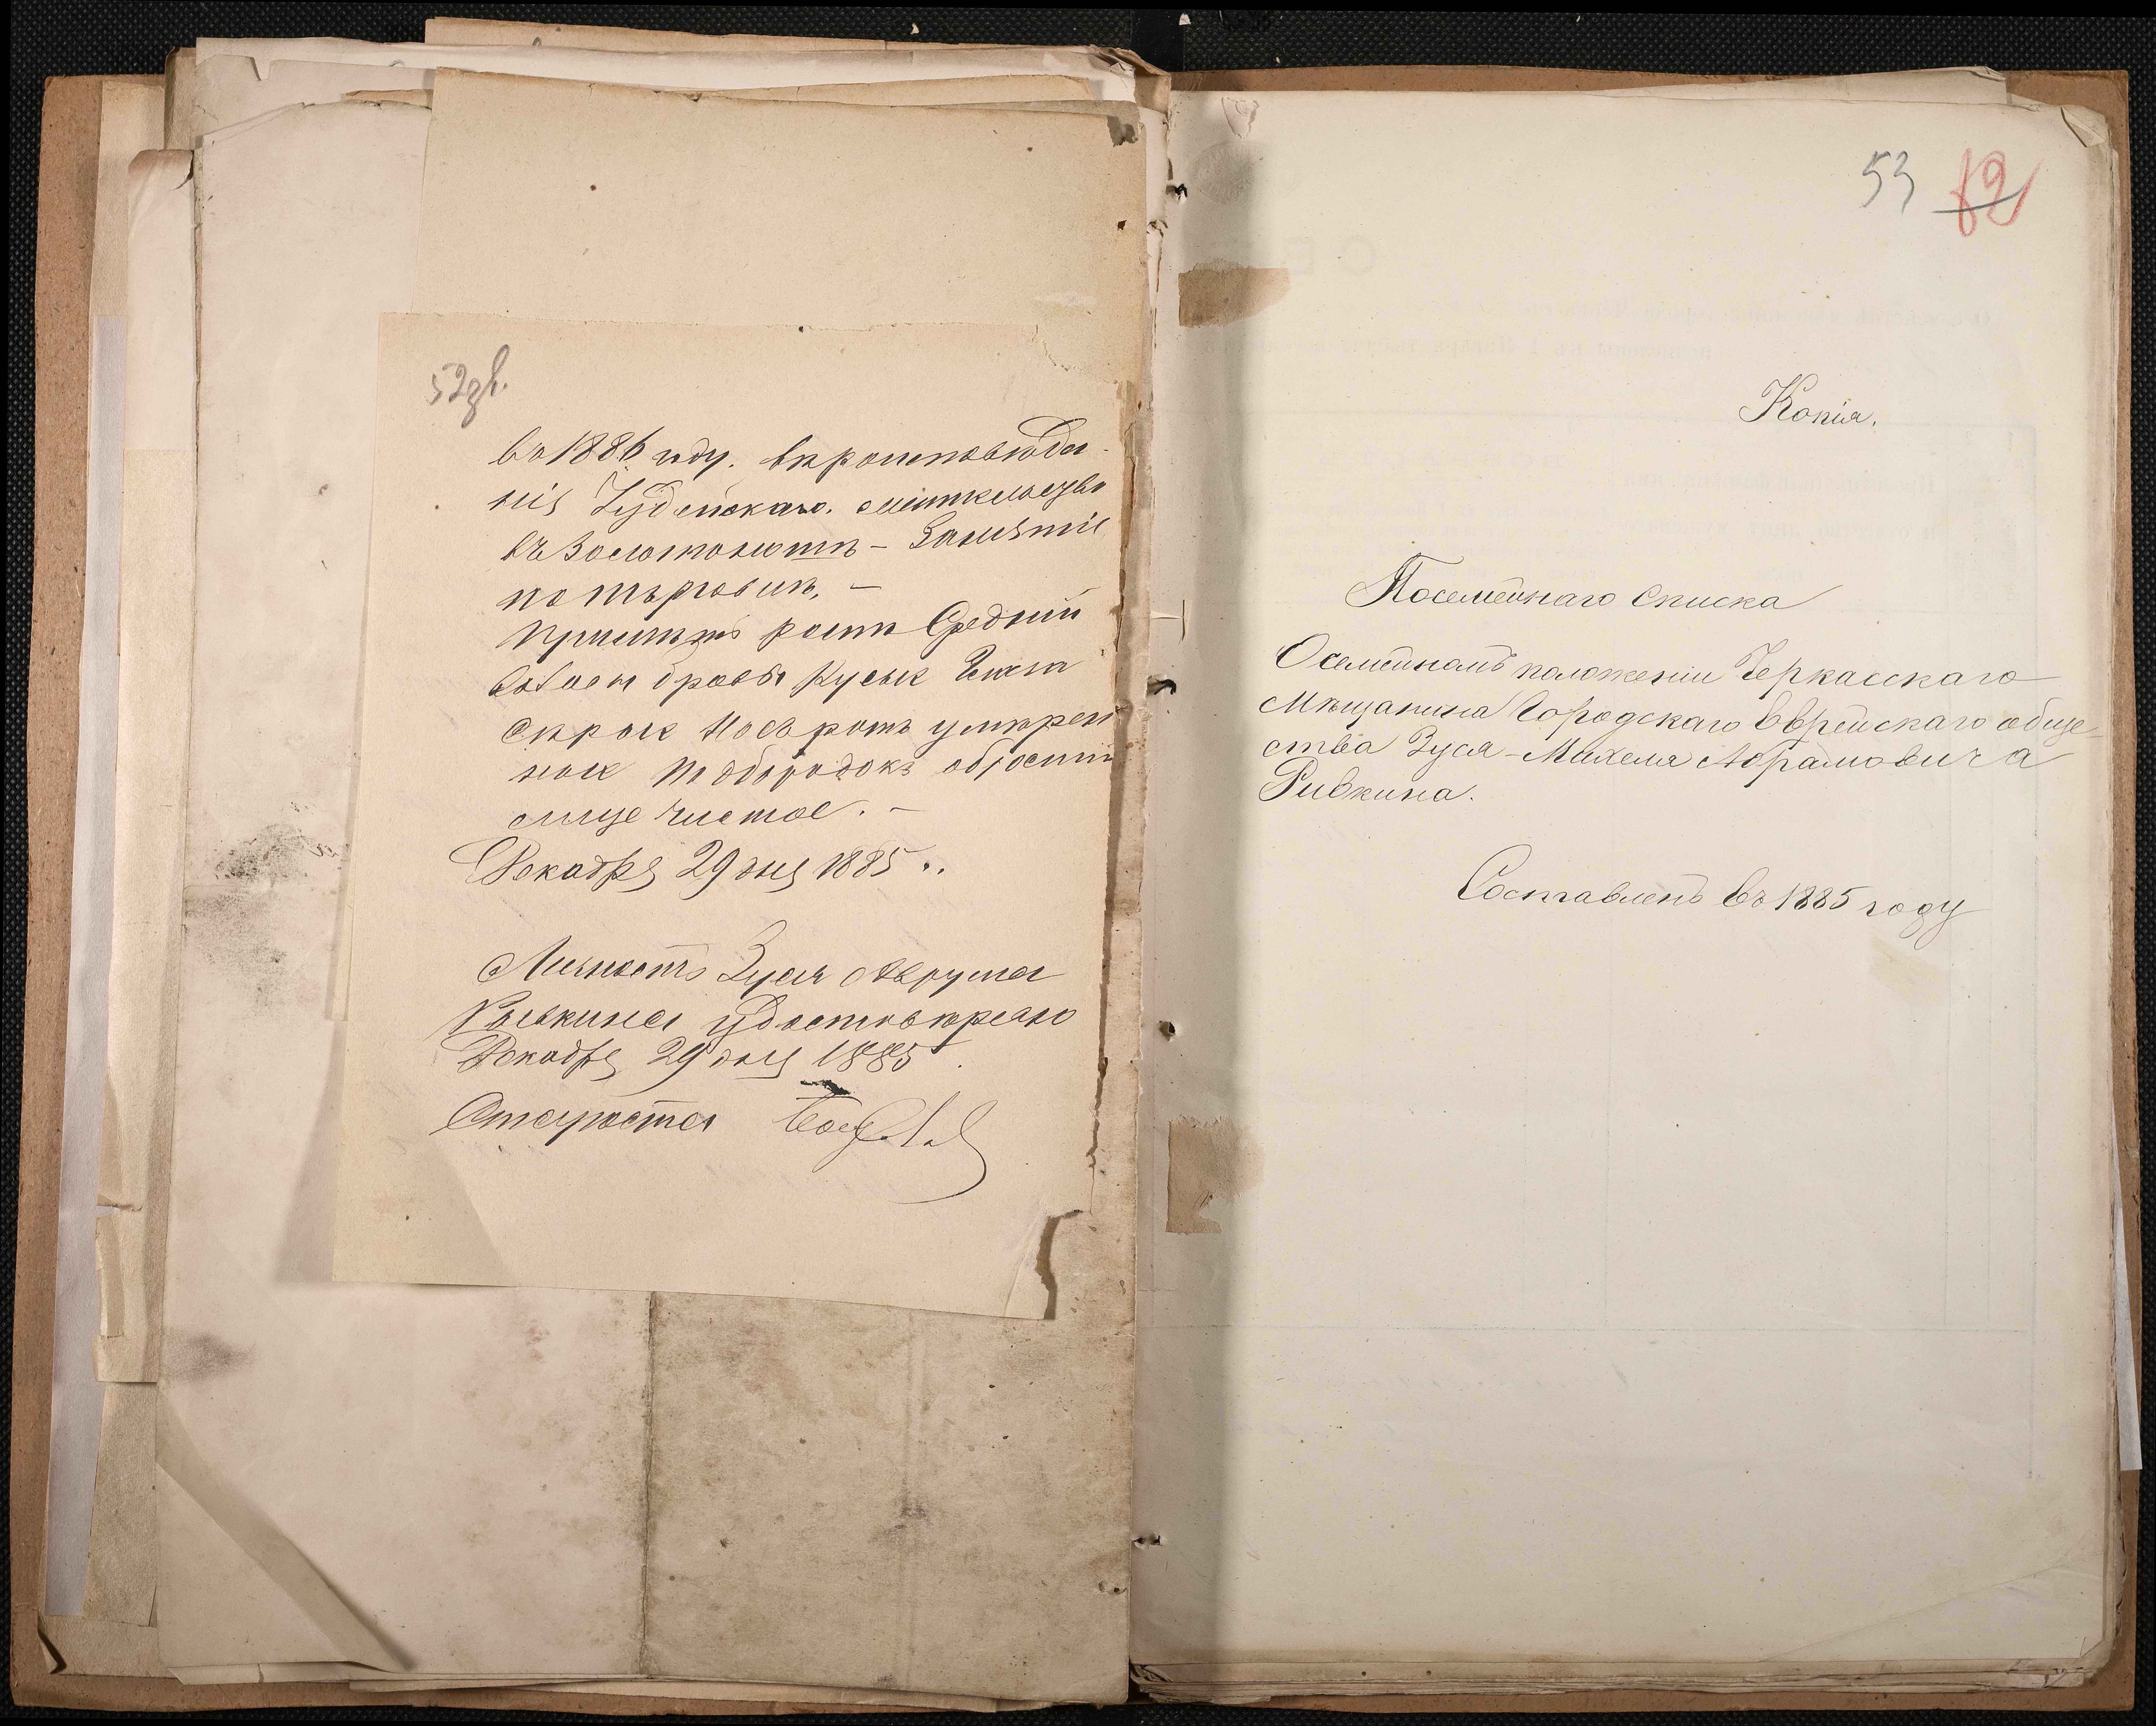 52зв.
въ 1886 году. вѣроисповѣда-
нія Іудейскаго. жительство
въ Золотоношѣ - Занятіе
по торговлѣ. -
Примѣты ростъ Средній
брови русые Глаза
сѣрые Носъ ротъ умѣрен
ные подбородокъ обросшій
лице чистое. -
Декабря 29 дня 1885..
Личность Зуся Аврума
Рывкина удостовѣряю
Декабря 29 дня 1885.
Староста
53 62
Копія.
Посемейнаго списка
О семейномъ положеніи Черкасскаго
Мѣщанина Городскаго Еврейскаго обще-
ства Зуся-Михеля Абрамовича
Ривкина.
Составленъ въ 1885 году